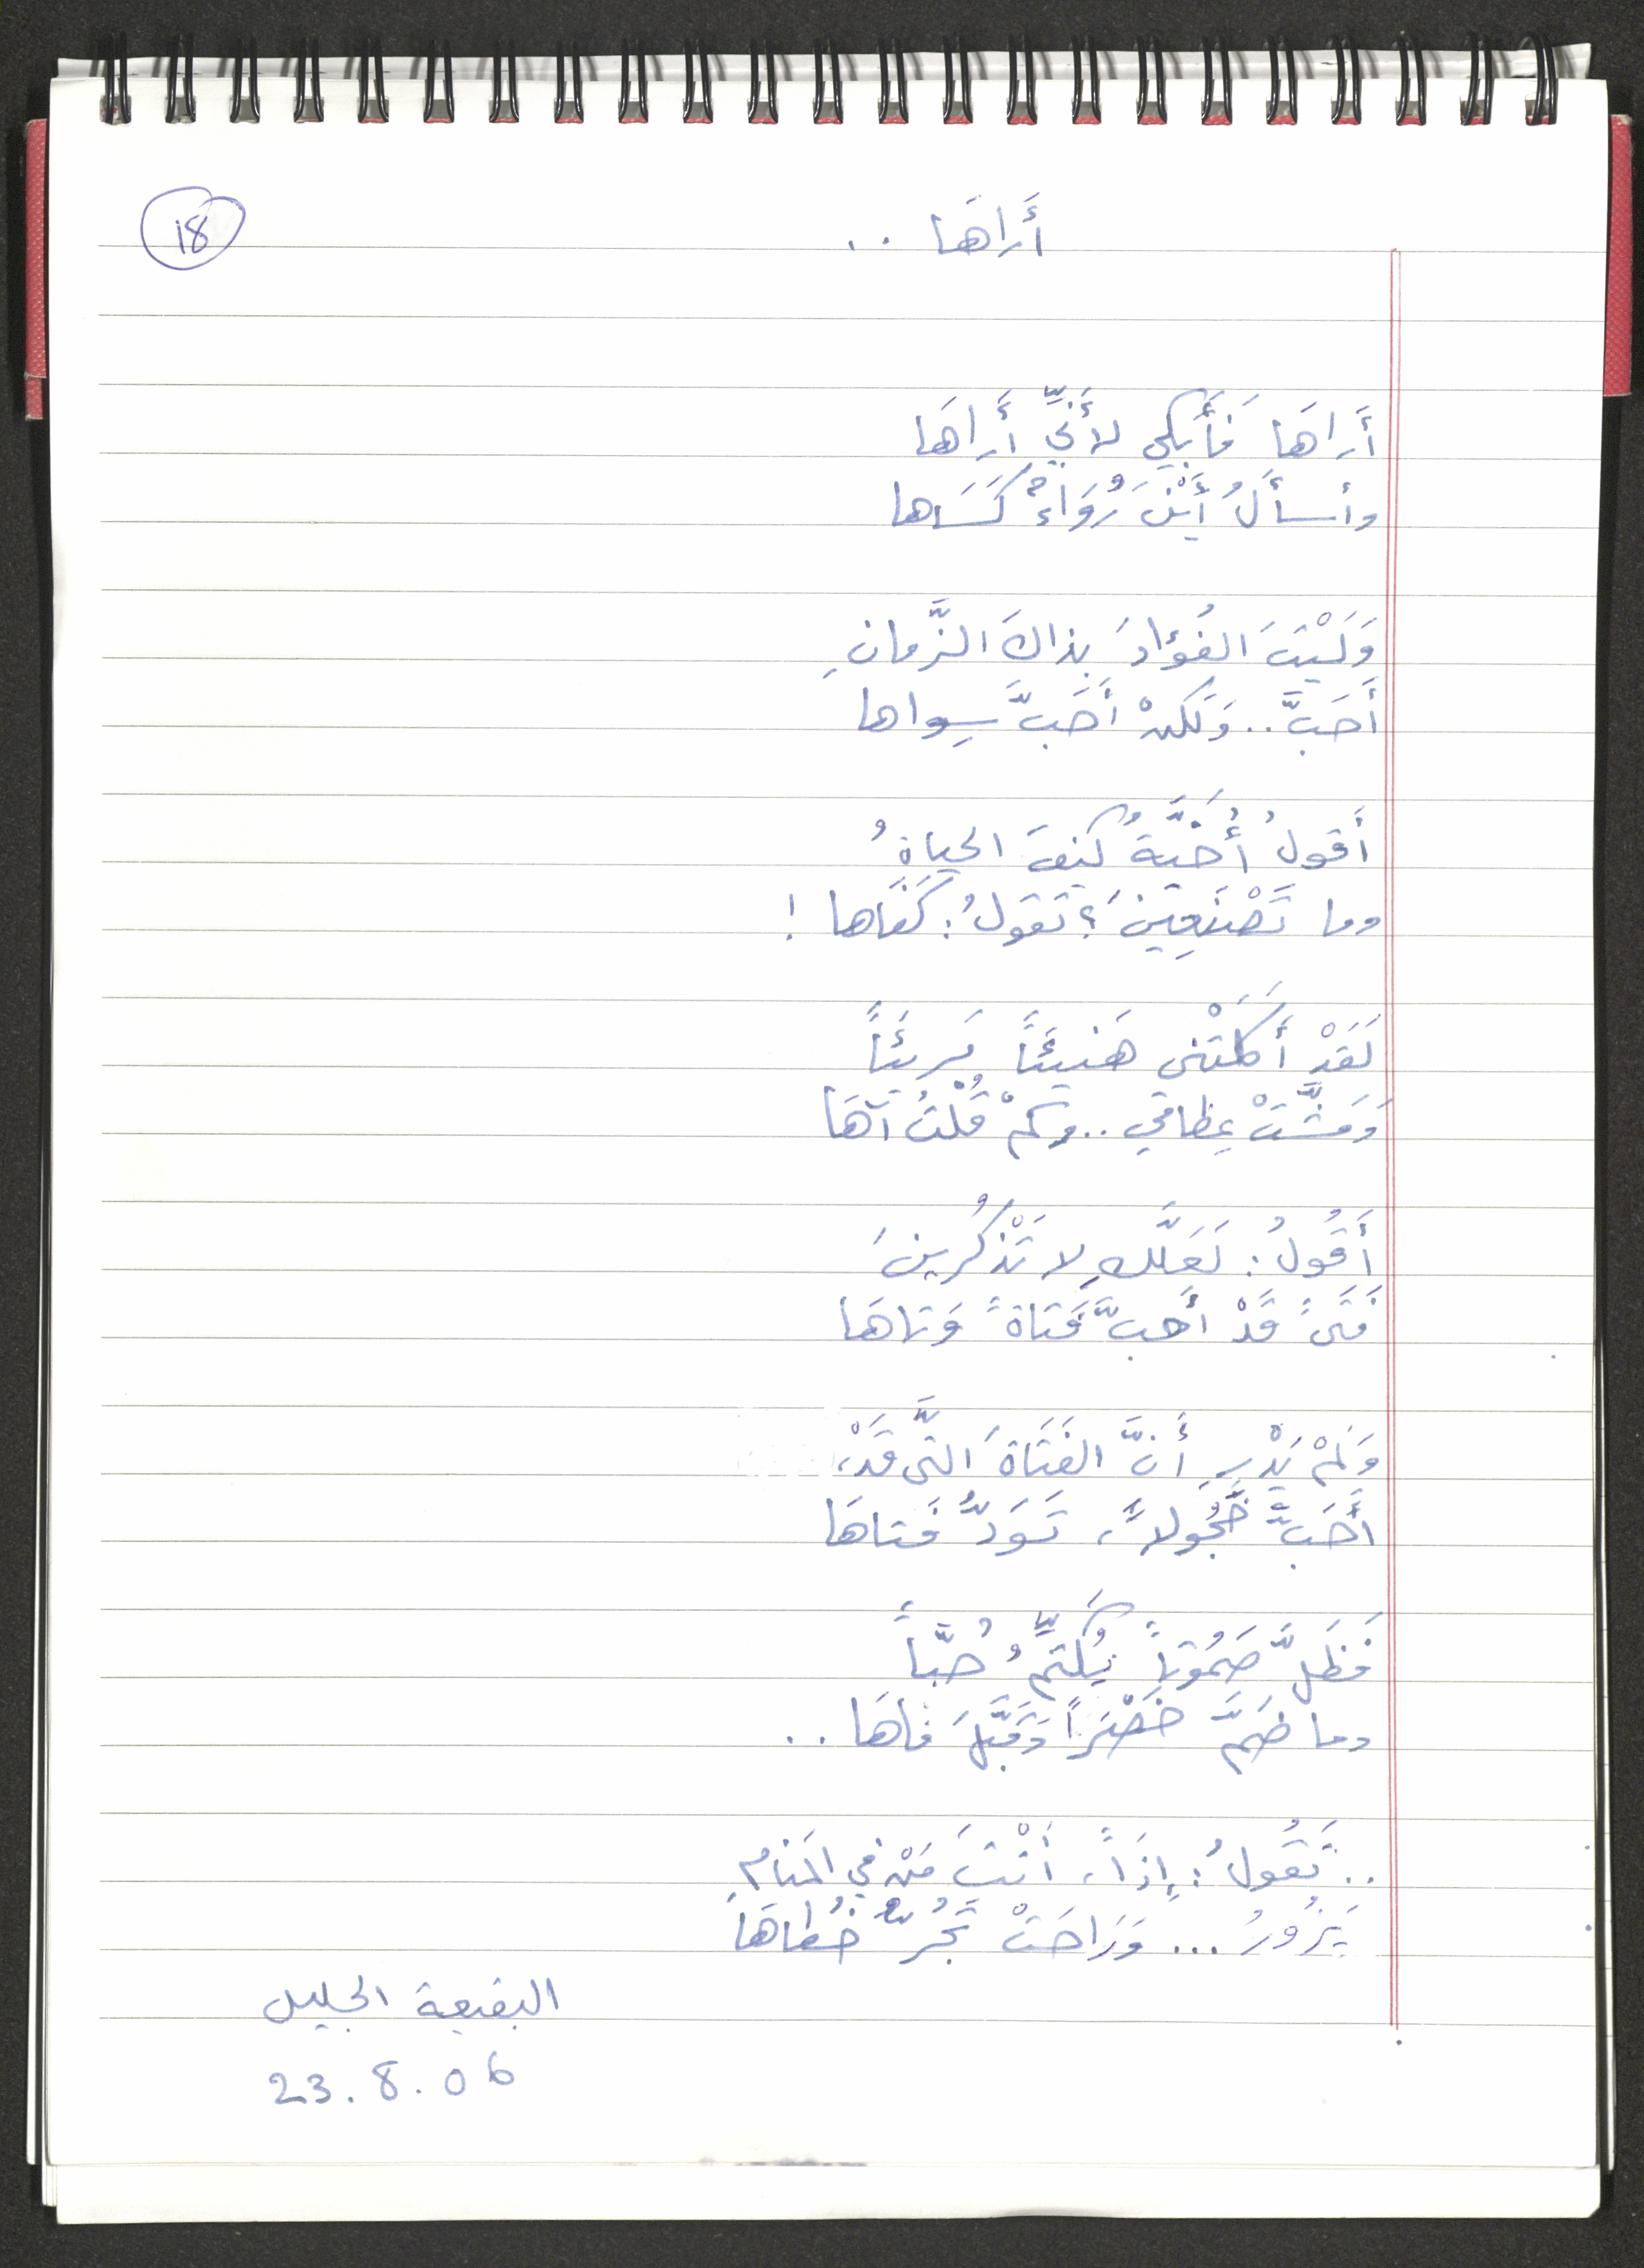 18
أَراهَا ..
أَراهَا فَأَبْكي لأَنِّي أَراهَا
وأسأَلُ أَيْنَ رُوَاءٌ كَسَاها
وَلَيْتَ الفُؤادَ بذاكَ الزَّمانِ
أَحَبَّ.. وَلَكنْ أَحَبَّ سِواها
أَقولُ أُخَيَّةُ كَيْفَ الحياةُ
وما تَصْنَعِينَ؟ تَقولُ: كَفَاها !
لَقَدْ أَكَلَتْني هَنيئَاً مَريئَاً
وَمَشَّتْ عِظامي.. وكمْ قُلْتُ آهَا
أَقُولُ: لَعَلَّكِ لا تَذْكُرينَ
فَتَىً قَدْ أَحَبَّ فَتاةً وَتاهَا
وَلَمْ يَدْرِ أَنَّ الفَتَاةَ التَّي قَدْ،
أَحَبَّ خَجُولاً، تَوَدُّ فَتاهَا
فَظَلَّ صَمُوتاً يُكَتِّمُ حُبَّاً
وما ضَمَّ خَصْرَاً وَقَبَّلَ فَاهَا..
.. تَقُولُ: إِذَاً، أَنْتَ مَنْ في المَنامِ
يَزُورُ ... وَرَاحَتْ تَجُرُّ خُطاهَا
البقيعة الجليل
23.8.06